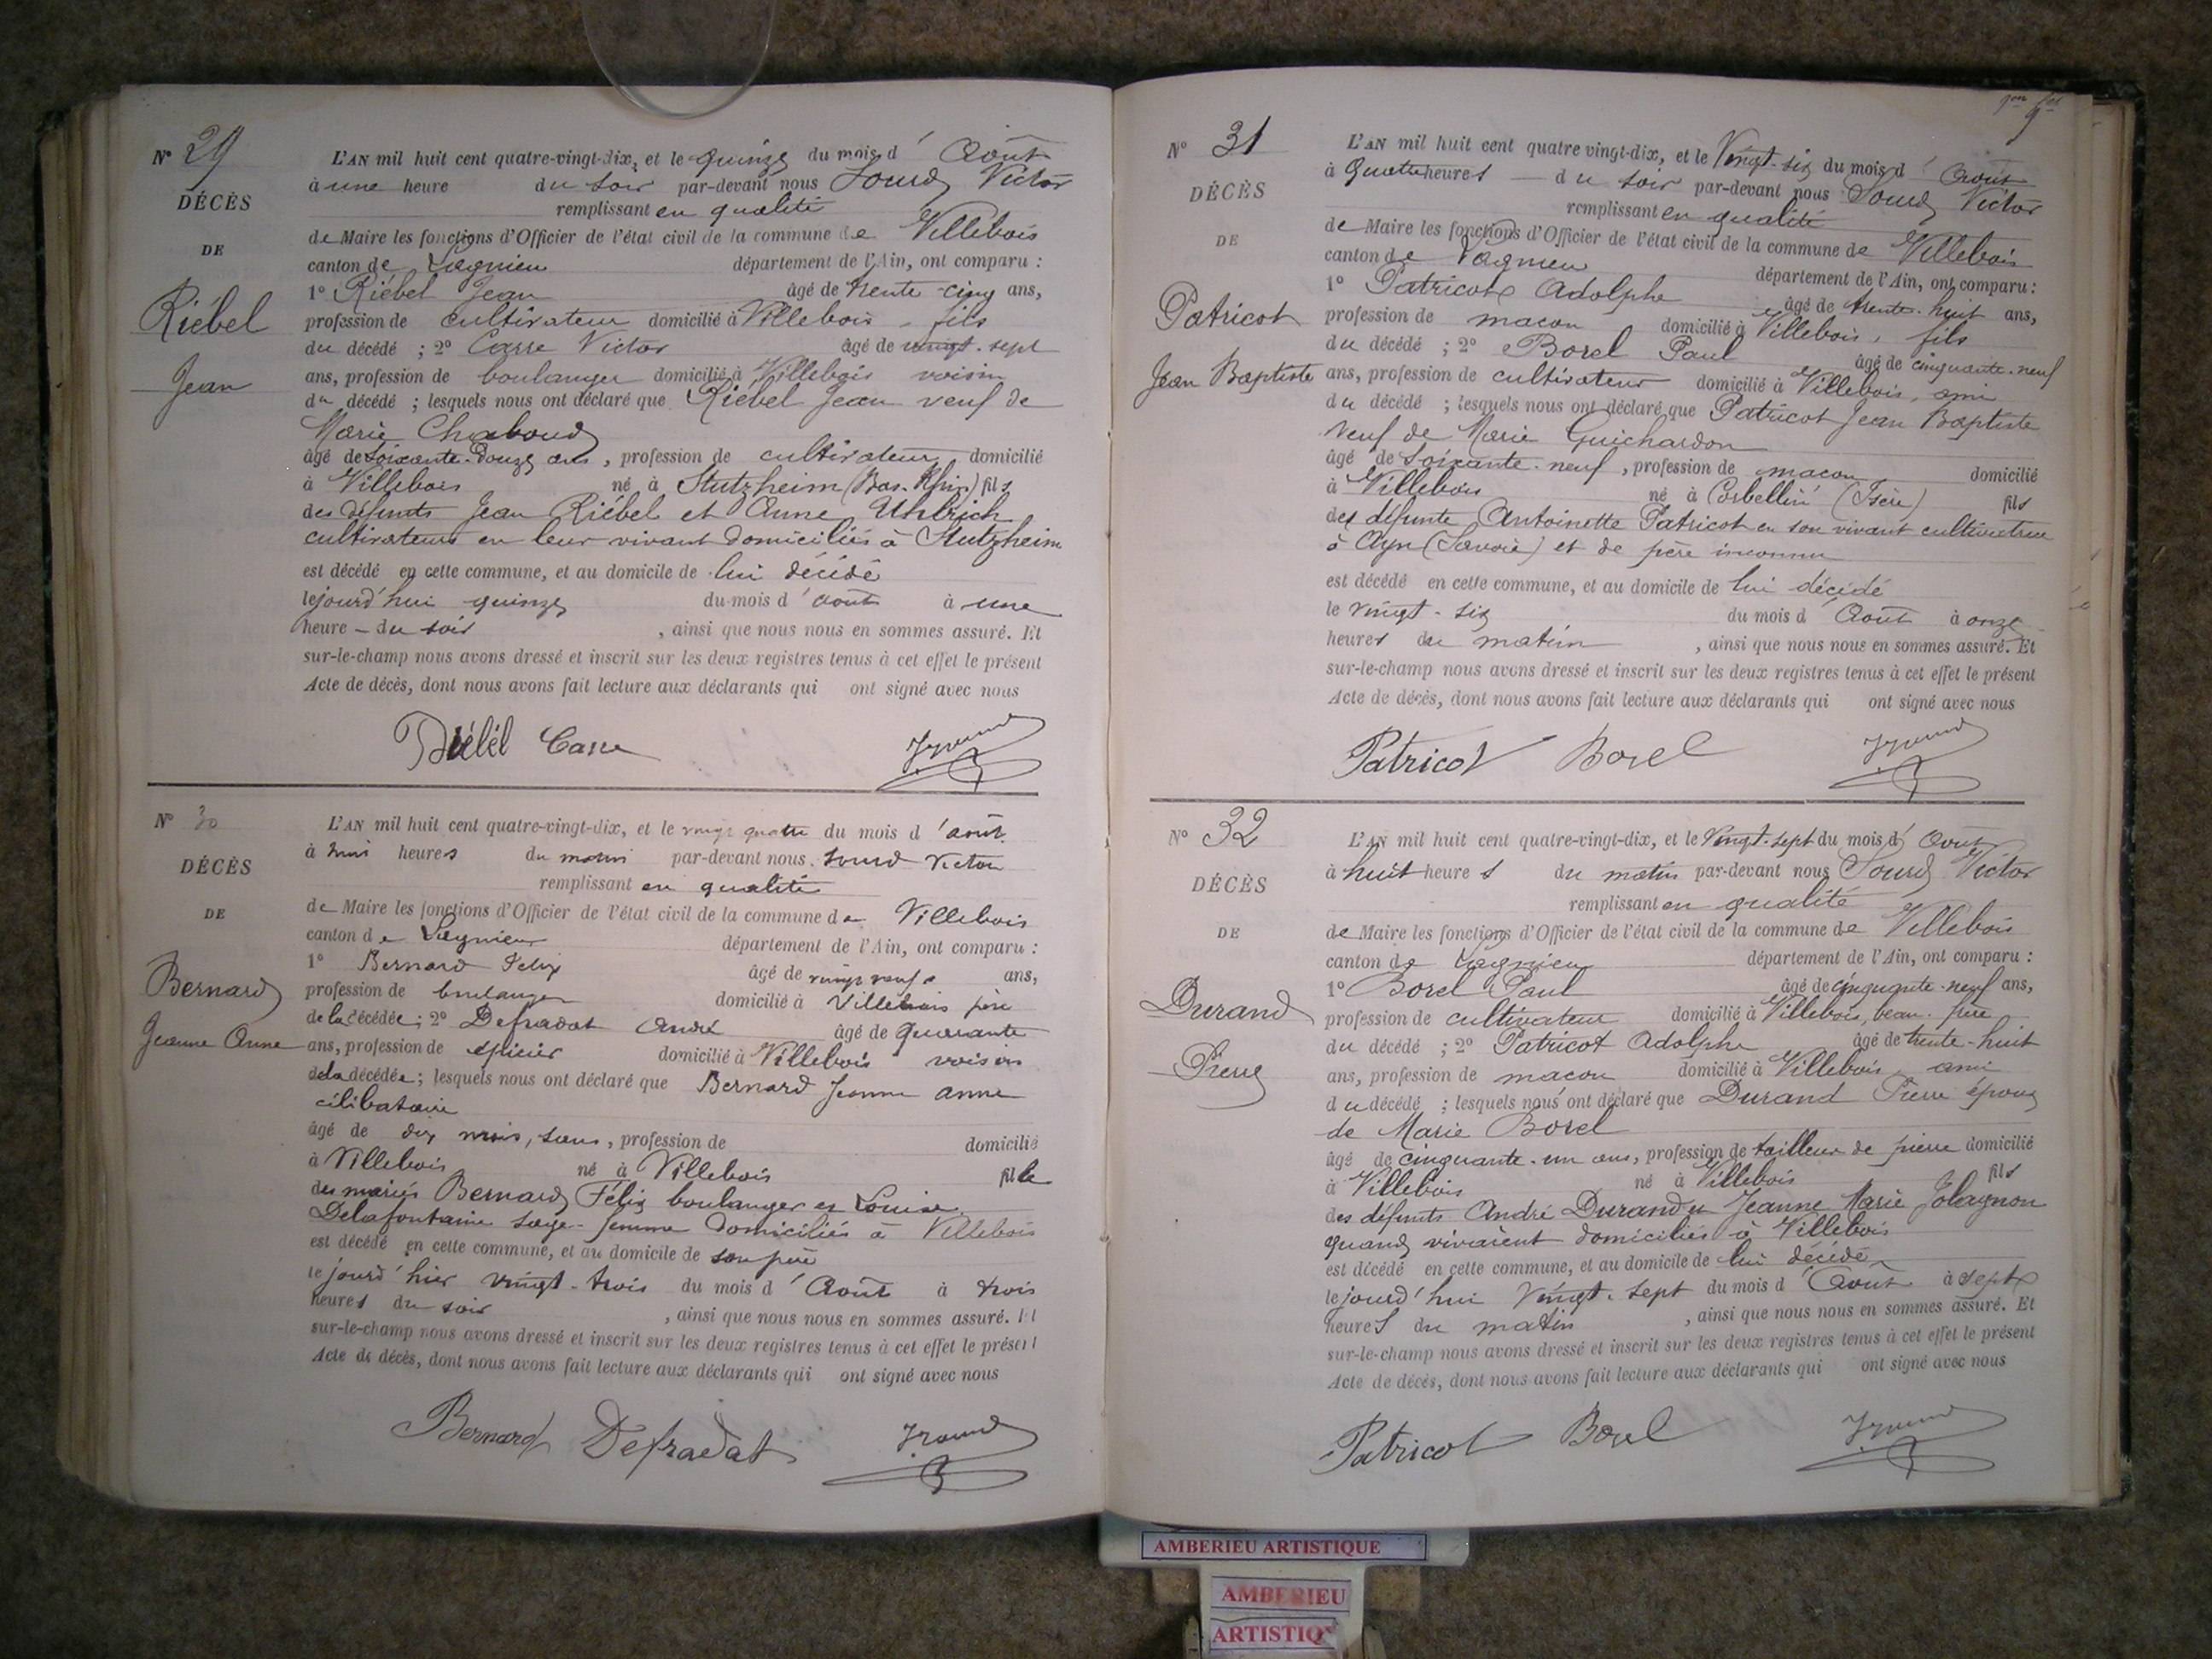 N° 29
DÉCÈS
DE
Riébel
Jean
L'AN mil huit cent quatre-vingt-dix, et le quinze du mois d'Août
à une heure du soir par-devant nous Sourd Victor
remplissant en qualité
de Maire les fonctions d'Officier de l'état civil de la commune de Villebois
canton de Lagnieu département de l'Ain, ont comparu :
1° Riébel Jean âgé de trente-cinq ans,
profession de cultivateur domicilié à Villebois, fils
du décédé ; 2° Carre Victor âgé de vingt-sept
ans, profession de boulanger domicilié à Villebois voisin
du décédé ; lesquels nous ont déclaré que Riébel Jean veuf de
Marie Chaboud
âgé de soixante-douze ans, profession de cultivateur domicilié
à Villebois né à Stutzheim (Bas-Rhin) fils
des défunts Jean Riébel et Anne Uhlrich
cultivateurs en leur vivant domiciliés à Stutzheim
est décédé en cette commune, et au domicile de lui décédé
le jourd'hui quinze du mois d'août à une
heure du soir , ainsi que nous nous en sommes assuré. Et
sur-le-champ nous avons dressé et inscrit sur les deux registres tenus à cet effet le présent
Acte de décès, dont nous avons fait lecture aux déclarants qui ont signé avec nous
Riébél Carre
N° 30
DÉCÈS
DE
Bernard
Jeanne Anne
L'AN mil huit cent quatre-vingt-dix, et le vingt quatre du mois d'août
à huit heures du matin par-devant nous Sourd Victor
remplissant en qualité
de Maire les fonctions d'Officier de l'état civil de la commune de Villebois
canton de Lagnieu département de l'Ain, ont comparu :
1° Bernard Felix âgé de vingt neuf ans,
profession de boulanger domicilié à Villebois père
de la décédée ; 2° Defradat André âgé de quarante
ans, profession de épicier domicilié à Villebois voisin
de la décédée ; lesquels nous ont déclaré que Bernard Jeanne Anne
célibataire
âgé de dix mois, sans, profession de domicilié
à Villebois né à Villebois fille
des mariés Bernard Félix boulanger et Louise
Delafontaine sage-femme domiciliés à Villebois
est décédé en cette commune, et au domicile de son père
le jourd'hier vingt-trois du mois d'Août à trois
heures du soir , ainsi que nous nous en sommes assuré. Et
sur-le-champ nous avons dressé et inscrit sur les deux registres tenus à cet effet le présent
Acte de décès, dont nous avons fait lecture aux déclarants qui ont signé avec nous
Bernard Defradat
N° 31
DÉCÈS
DE
Patricot
Jean Baptiste
L'AN mil huit cent quatre-vingt-dix, et le Vingt-six du mois d'Août
à quatre heures du soir par-devant nous Sourd Victor
remplissant en qualité
de Maire les fonctions d'Officier de l'état civil de la commune de Villebois
canton de Lagnieu département de l'Ain, ont comparu :
1° Patricot Adolphe âgé de trente-huit ans,
profession de maçon domicilié à Villebois, fils
du décédé ; 2° Borel Paul âgé de cinquante-neuf
ans, profession de cultivateur domicilié à Villebois, ami
du décédé ; lesquels nous ont déclaré que Patricot Jean Baptiste
veuf de Marie Guichardon
âgé de soixante-neuf, profession de maçon domicilié
à Villebois né à Corbellin (Isère) fils
des défunte Antoinette Patricot en son vivant cultivatrice
à Ayn (Savoie) et de père inconnu
est décédé en cette commune, et au domicile de lui décédé
le vingt-six du mois d'Août à onze
heures du matin , ainsi que nous nous en sommes assuré. Et
sur-le-champ nous avons dressé et inscrit sur les deux registres tenus à cet effet le présent
Acte de décès, dont nous avons fait lecture aux déclarants qui ont signé avec nous
Patricot Borel
N° 32
DÉCÈS
DE
Durand
Pierre
L'AN mil huit cent quatre-vingt-dix, et le Vingt-sept du mois d'Août
à huit heures du matin par-devant nous Sourd Victor
remplissant en qualité
de Maire les fonctions d'Officier de l'état civil de la commune de Villebois
canton de Lagnieu département de l'Ain, ont comparu :
1° Borel Paul âgé de cinquante-neuf ans,
profession de cultivateur domicilié à Villebois, beau-frère
du décédé ; 2° Patricot Adolphe âgé de trente-huit
ans, profession de maçon domicilié à Villebois, ami
du décédé ; lesquels nous ont déclaré que Durand Pierre époux
de Marie Borel
âgé de cinquante-un ans, profession de tailleur de pierre domicilié
à Villebois né à Villebois fils
des défunts André Durand et Jeanne Marie Jolagnon
quand vivaient domiciliés à Villebois
est décédé en cette commune, et au domicile de lui décédé
le jourd'hui Vingt-sept du mois d'Août à sept
heures du matin , ainsi que nous nous en sommes assuré. Et
sur-le-champ nous avons dressé et inscrit sur les deux registres tenus à cet effet le présent
Acte de décès, dont nous avons fait lecture aux déclarants qui ont signé avec nous
Patricot Borel
AMBERIEU ARTISTIQUE
AMBERIEU
ARTISTIQ